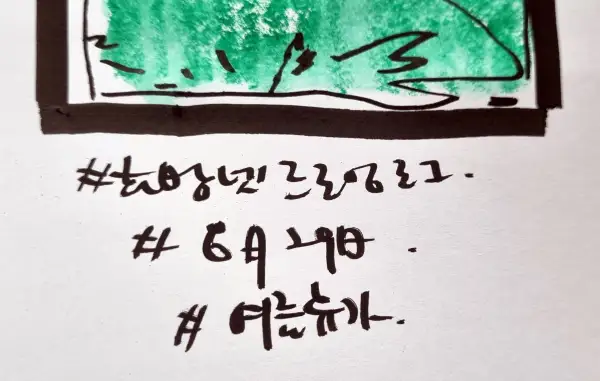 #화방넷 드로잉로그.
# 6月 29日 .
# 여름휴가.